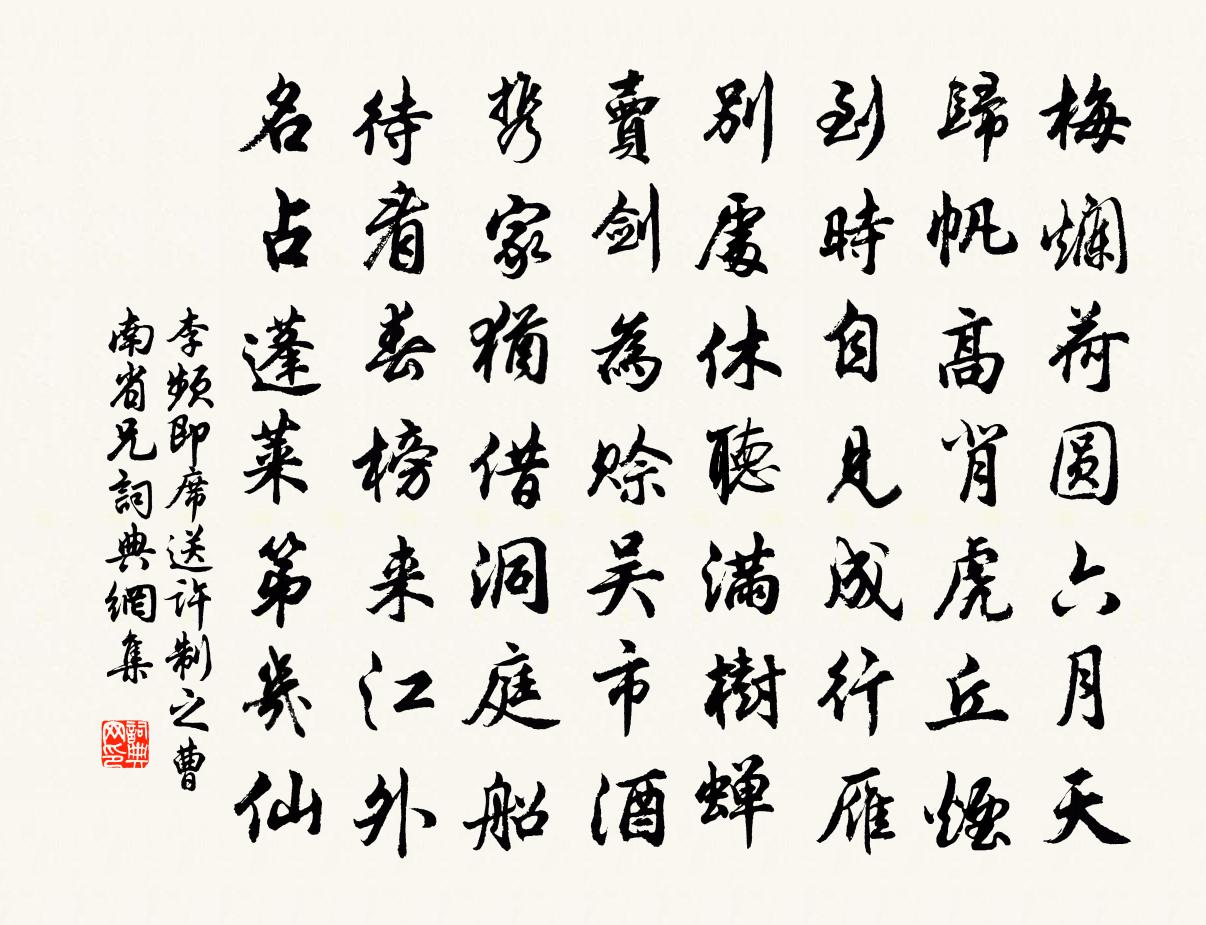 梅爛荷圓六月天
歸帆高背虎丘煙
到時自見成行雁
別處休聽滿樹蟬
賣劍為賒吳市酒
携家猶借洞庭船
待看春榜来江外
名占蓬萊第幾仙
李頻即席送許制之曹
南省兄詞典網集
詞典
网印